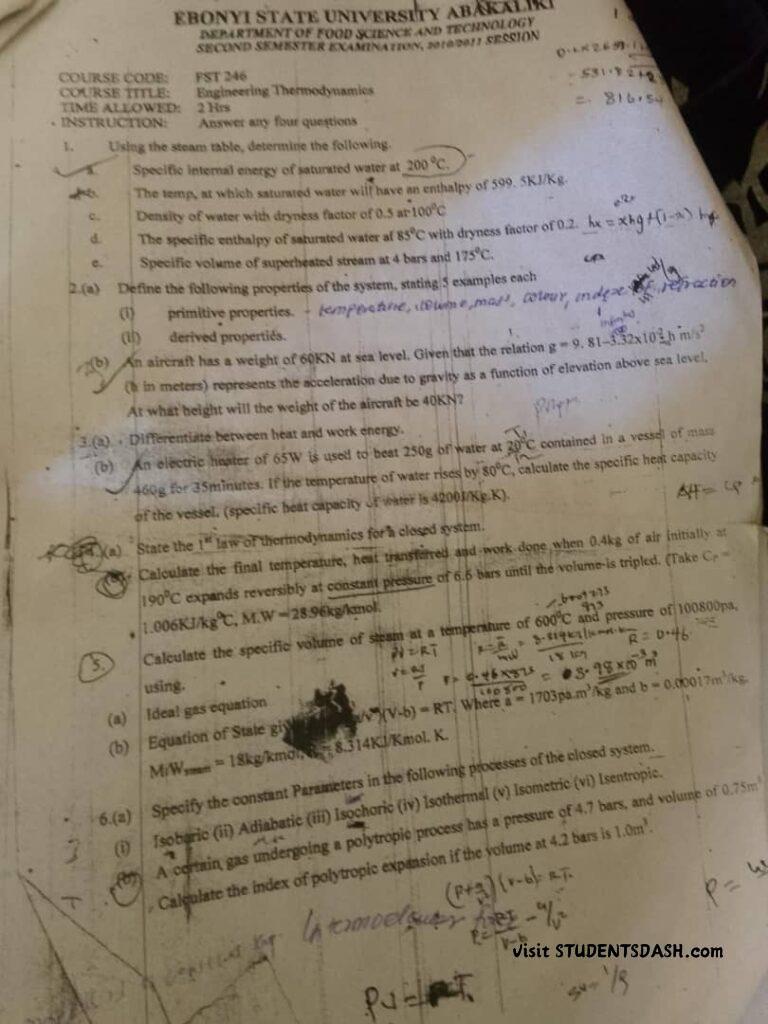 EBONYI STATE UNIVERSITY ABAKALIKI
DEPARTMENT OF FOOD SCIENCE AND TECHNOLOGY
SECOND SEMESTER EXAMINATION, 2010/2011 SESSION
COURSE CODE: FST 246
COURSE TITLE: Engineering Thermodynamics
TIME ALLOWED: 2 Hrs
INSTRUCTION: Answer any four questions
1. Using the steam table, determine the following.
a. Specific internal energy of saturated water at 200 ⁰C.
b. The temp, at which saturated water will have an enthalpy of 599. 5KJ/Kg.
c. Density of water with dryness factor of 0.5 at 100⁰C
d. The specific enthalpy of saturated water at 85⁰C with dryness factor of 0.2. hx = xhg + (1-x) hf
e. Specific volume of superheated stream at 4 bars and 175⁰C.
2.(a) Define the following properties of the system, stating 5 examples each
(i) primitive properties. - temperature, volume, mass, colour, refraction
(ii) derived properties.
(b) An aircraft has a weight of 60KN at sea level. Given that the relation g = 9. 81–3.32x10 h m/s²
(h in meters) represents the acceleration due to gravity as a function of elevation above sea level.
At what height will the weight of the aircraft be 40KN?
3.(a) Differentiate between heat and work energy.
(b) An electric heater of 65W is used to heat 250g of water at 20⁰C contained in a vessel of mass
460g for 35minutes. If the temperature of water rises by 80⁰C, calculate the specific heat capacity
of the vessel. (specific heat capacity of water is 4200J/Kg.K).
4.(a) State the 1st law of thermodynamics for a closed system.
Calculate the final temperature, heat transferred and work done when 0.4kg of air initially at
190⁰C expands reversibly at constant pressure of 6.6 bars until the volume is tripled. (Take Cp =
1.006KJ/kg⁰C, M.W = 28.96kg/kmol.
5. Calculate the specific volume of steam at a temperature of 600⁰C and pressure of 100800pa,
using. PV = RT R = 0.46
(a) Ideal gas equation
(b) Equation of State (V-b) = RT. Where a = 1703pa.m³/kg and b = 0.00017m³/kg.
8.314KJ/Kmol. K.
6.(a) Specify the constant Parameters in the following processes of the closed system.
(i) Isobaric (ii) Adiabatic (iii) Isochoric (iv) Isothermal (v) Isometric (vi) Isentropic.
(b) A certain gas undergoing a polytropic process has a pressure of 4.7 bars, and volume of 0.75m³
Calculate the index of polytropic expansion if the volume at 4.2 bars is 1.0m³.
Visit STUDENTSDASH.com